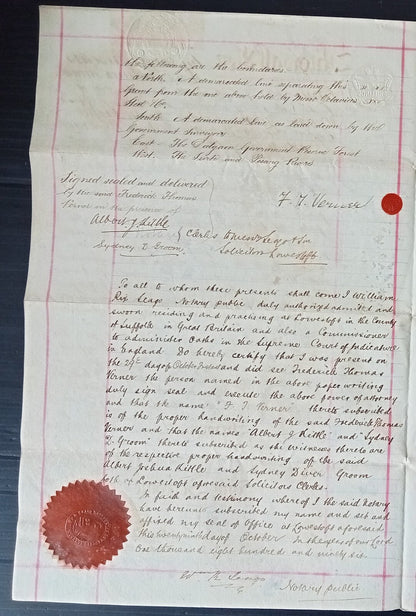 The following are the boundaries:
North. A demarcated line separating this
Grant from the one above held by Messrs Octavius
Steel & Co.
South. A demarcated line as laid down by the
Government Surveyor
East. The Government Reserve Forest
West. The and Rivers
Signed sealed and delivered
by the said Frederick Thomas
Verner in the presence of
F. T. Verner
Albert J Kittle
Sydney D. Groom
Clerks to Messrs Seago & Son
Solicitors Lowestoft
To all to whom these presents shall come I William
Rix Seago Notary public duly authorized admitted and
sworn residing and practising at Lowestoft in the County
of Suffolk in Great Britain and also a Commissioner
to administer Oaths in the Supreme Court of Judicature
in England Do hereby certify that I was present on
the 29th day of October and did see Frederick Thomas
Verner the person named in the above paper writing
duly sign seal and execute the above power of attorney
and that the name "F. T Verner" thereto subscribed
is of the proper handwriting of the said Frederick Thomas
Verner and that the names "Albert J Kittle" and "Sydney
D. Groom" thereto subscribed as the witnesses thereto are
of the respective proper handwriting of the said
Albert Joshua Kittle and Sydney Diver Groom
both of Lowestoft aforesaid Solicitors Clerks.
In faith and testimony whereof I the said notary
have hereunto subscribed my name and set and
affixed my seal of Office at Lowestoft aforesaid
this twenty ninth day of October In the year of our Lord
one thousand eight hundred and ninety six
Wm R Seago
Notary public